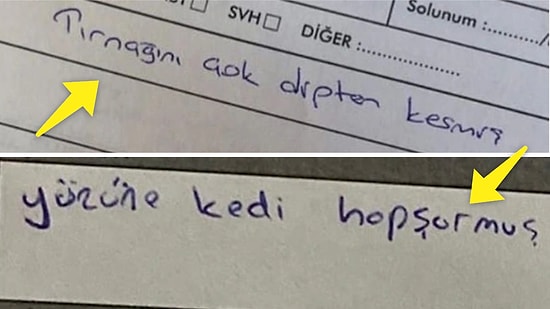 SVH
DİĞER :
Solunum :
Tırnağını çok dipten kesmiş
yüzüne kedi hapşurmuş